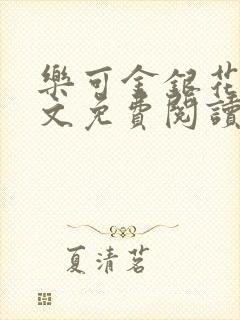 樂可金銀花
文免費閱讀
夏清茗